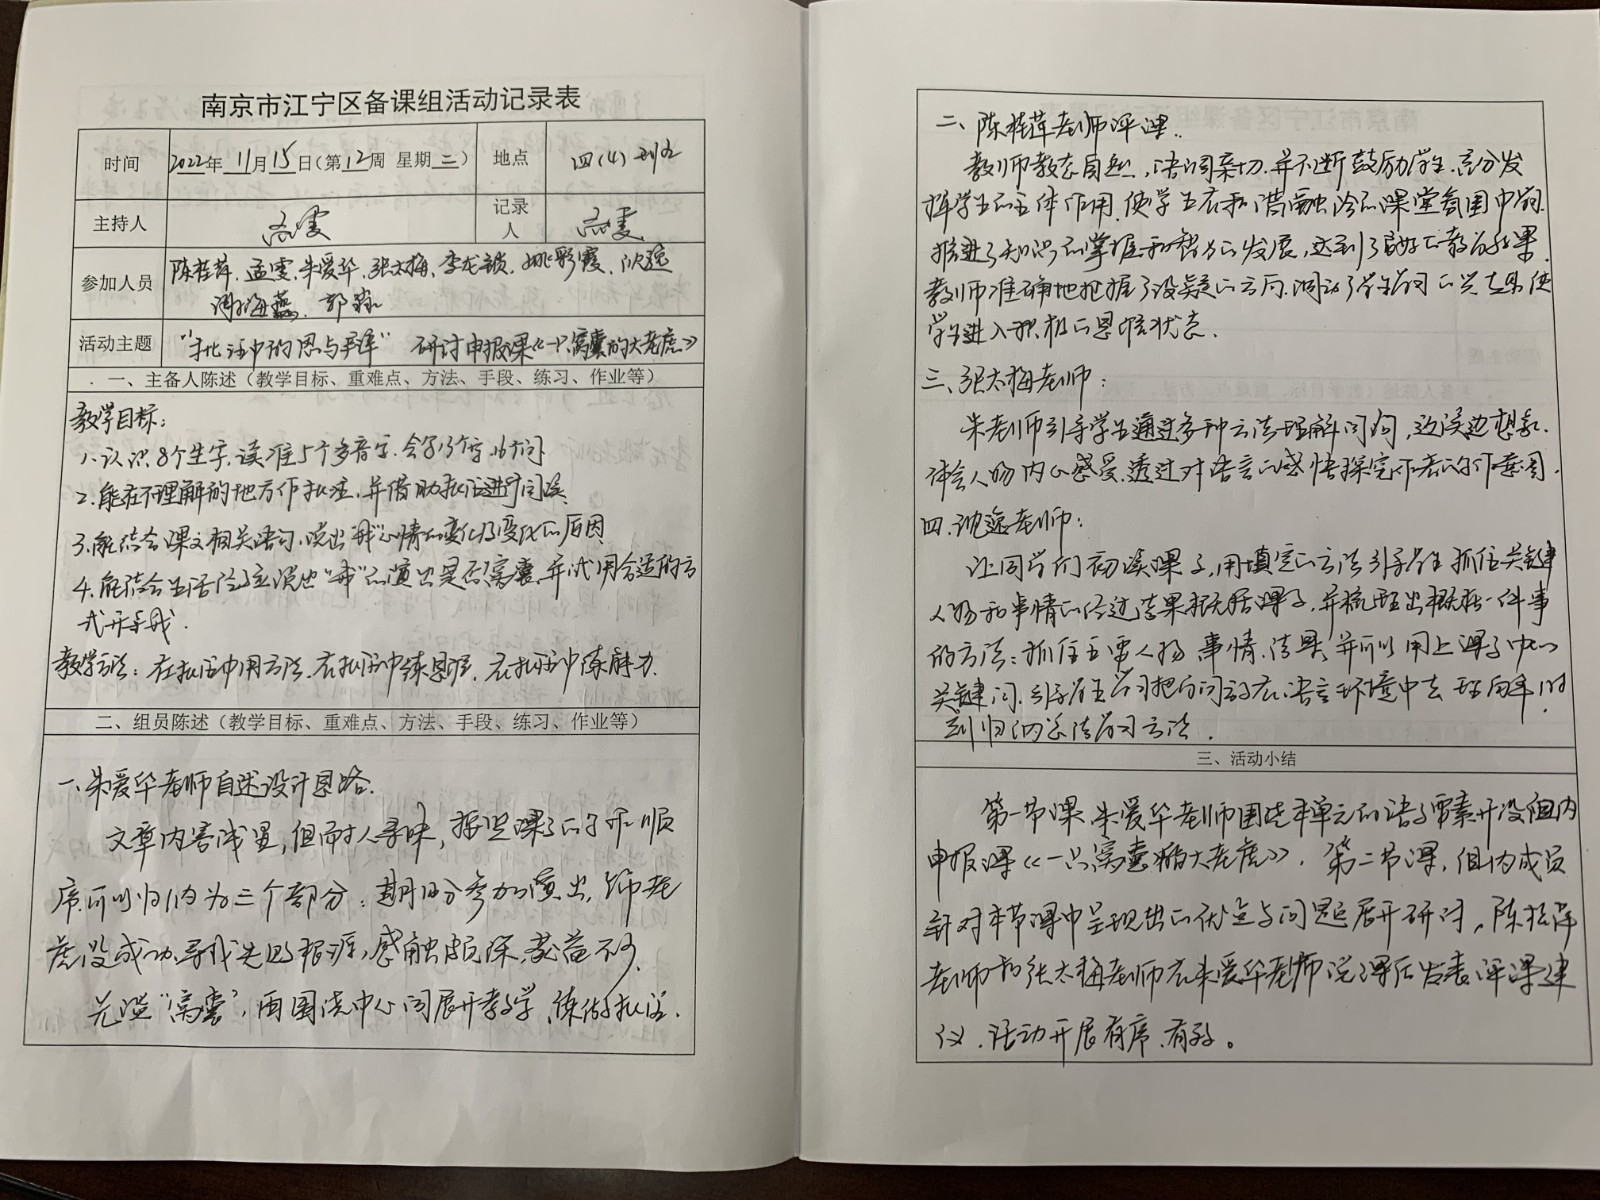 南京市江宁区备课组活动记录表
时间 2022年 11月15日(第12周 星期二) 地点 四(4)
主持人 孟雯 记录人 孟雯
参加人员 陈桂萍、孟雯、朱爱华、张太梅、李龙锁、姚彩霞、沈逸
谢海燕、郭
活动主题 “批注中的思与辨” 研讨申报课《一只窝囊的大老虎》
一、主备人陈述(教学目标、重难点、方法、手段、练习、作业等)
教学目标:
1.认识8个生字,读准5个多音字,会写13个字,16个词
2.能在不理解的地方作批注,并借助批注进行阅读
3.能结合课文相关语句,说出“我”心情的变化及变化的原因
4.能结合生活经验说说“我”的演出是否窝囊,并试用合适的方
式开导我.
教学方法:在批注中用方法,在批注中练思维,在批注中练能力.
二、组员陈述(教学目标、重难点、方法、手段、练习、作业等)
一、朱爱华老师自述设计思路.
文章内容浅显,但耐人寻味,按照课文的写作顺
序,可以归纳为三个部分:期盼参加演出,扮老
虎没成功,寻找失败根源,感触颇深,获益不少.
先谈“窝囊”,再围绕中心词展开教学,练做批注.
二、陈桂萍老师评课.
教师教态自然,语调亲切.并不断鼓励学生,充分发
挥学生的主体作用,使学生在和谐融洽的课堂氛围中学习.
推进了知识的掌握和智力的发展,达到了良好的教育效果.
教师准确地把握了设疑的方向,调动了学生学习的兴趣,使
学生进入积极的思维状态.
三、张太梅老师:
朱老师引导学生通过多种方法理解词句,边读边想象.
体会人物内心感受,透过对语言的感悟探究作者的写作意图.
四.沈逸老师:
让同学们初读课文,用填空的方法引导学生抓住关键
人物和事情的经过结果概括课文,并梳理出概括一件事
的方法:抓住主要人物、事情、结果,并可以用上课文中的
关键词.引导学生学习把句词放在语言环境中去理解,及时
归纳总结学习方法.
三、活动小结
第一节课,朱爱华老师围绕本单元的语文要素开设组内
申报课《一只窝囊的大老虎》.第二节课,组内成员
针对本节课中呈现出的优点与问题展开研讨,陈桂萍
老师和张太梅老师在朱爱华老师说课后发表评课建
议.活动开展有序、有效。